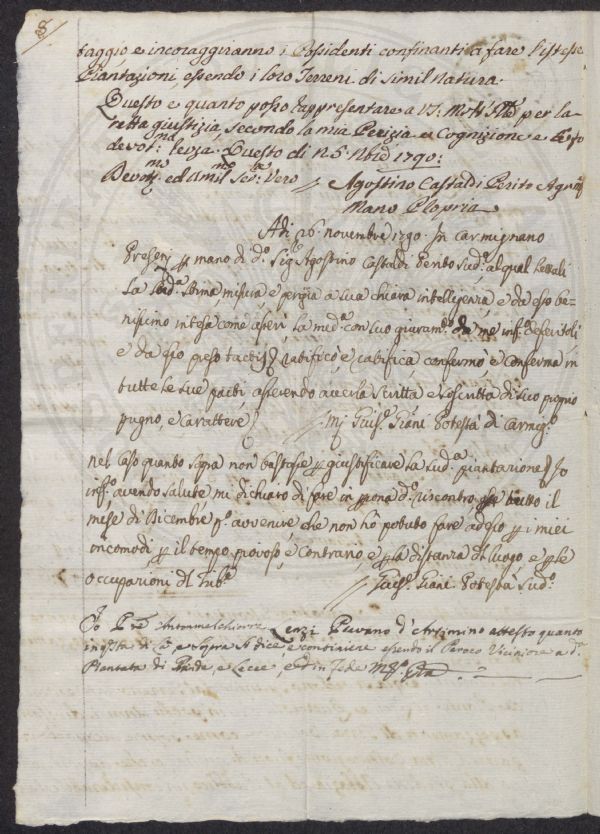 8
taggio, e incoraggiranno i Possidenti confinanti a fare l'istesse
Piantazioni, essendo i loro Terreni di simil natura.
Questo è quanto posso rappresentare a per la
retta giustizia, secondo la mia Perizia, e Cognizione e
devot: Questo di 25. Nbre 1790:
Devotmo: ed Umilmo Servo: Vero // Agostino Castaldi Perito Agrim
Mano Propria
Adì 26. novembre 1790. In Carmignano
mano di do. Sigr. Agostino Castaldi Perito sudo. al qual
La sudda. stima, misura e perizia a sua chiara intelligenza, e da esso be-
nissimo intesa come asserì, la medma. con suo giuramto. da me infto.
e da esso preso tactis ratificò, e ratifica confermò e conferma in
tutte le sue parti, asserendo averla scritta e soscritta di suo proprio
pugno, e carattere // Giusе. Piani Potestà di Carmigno.
nel caso quanto sopra non bastasse giustificare la sudda. piantazione Io
infto. avendo salute, mi dichiaro di fare in do. riscontro tutto il
mese di Dicembre po. avvenire, che non hò potuto fare adesso i miei
incomodi, il tempo piovoso, e contrario, e la distanza di luogo, e
occupazioni di
// Giuse. Piani Potestà sudo.
Io Pre Antonmelchiorre Lenzi Pievano d'Artimino attesto quanto
di Là, e Sopra si dice, e contiene essendo il Paroco Viciniore a da.
Piantata di e Lecce, e in fede